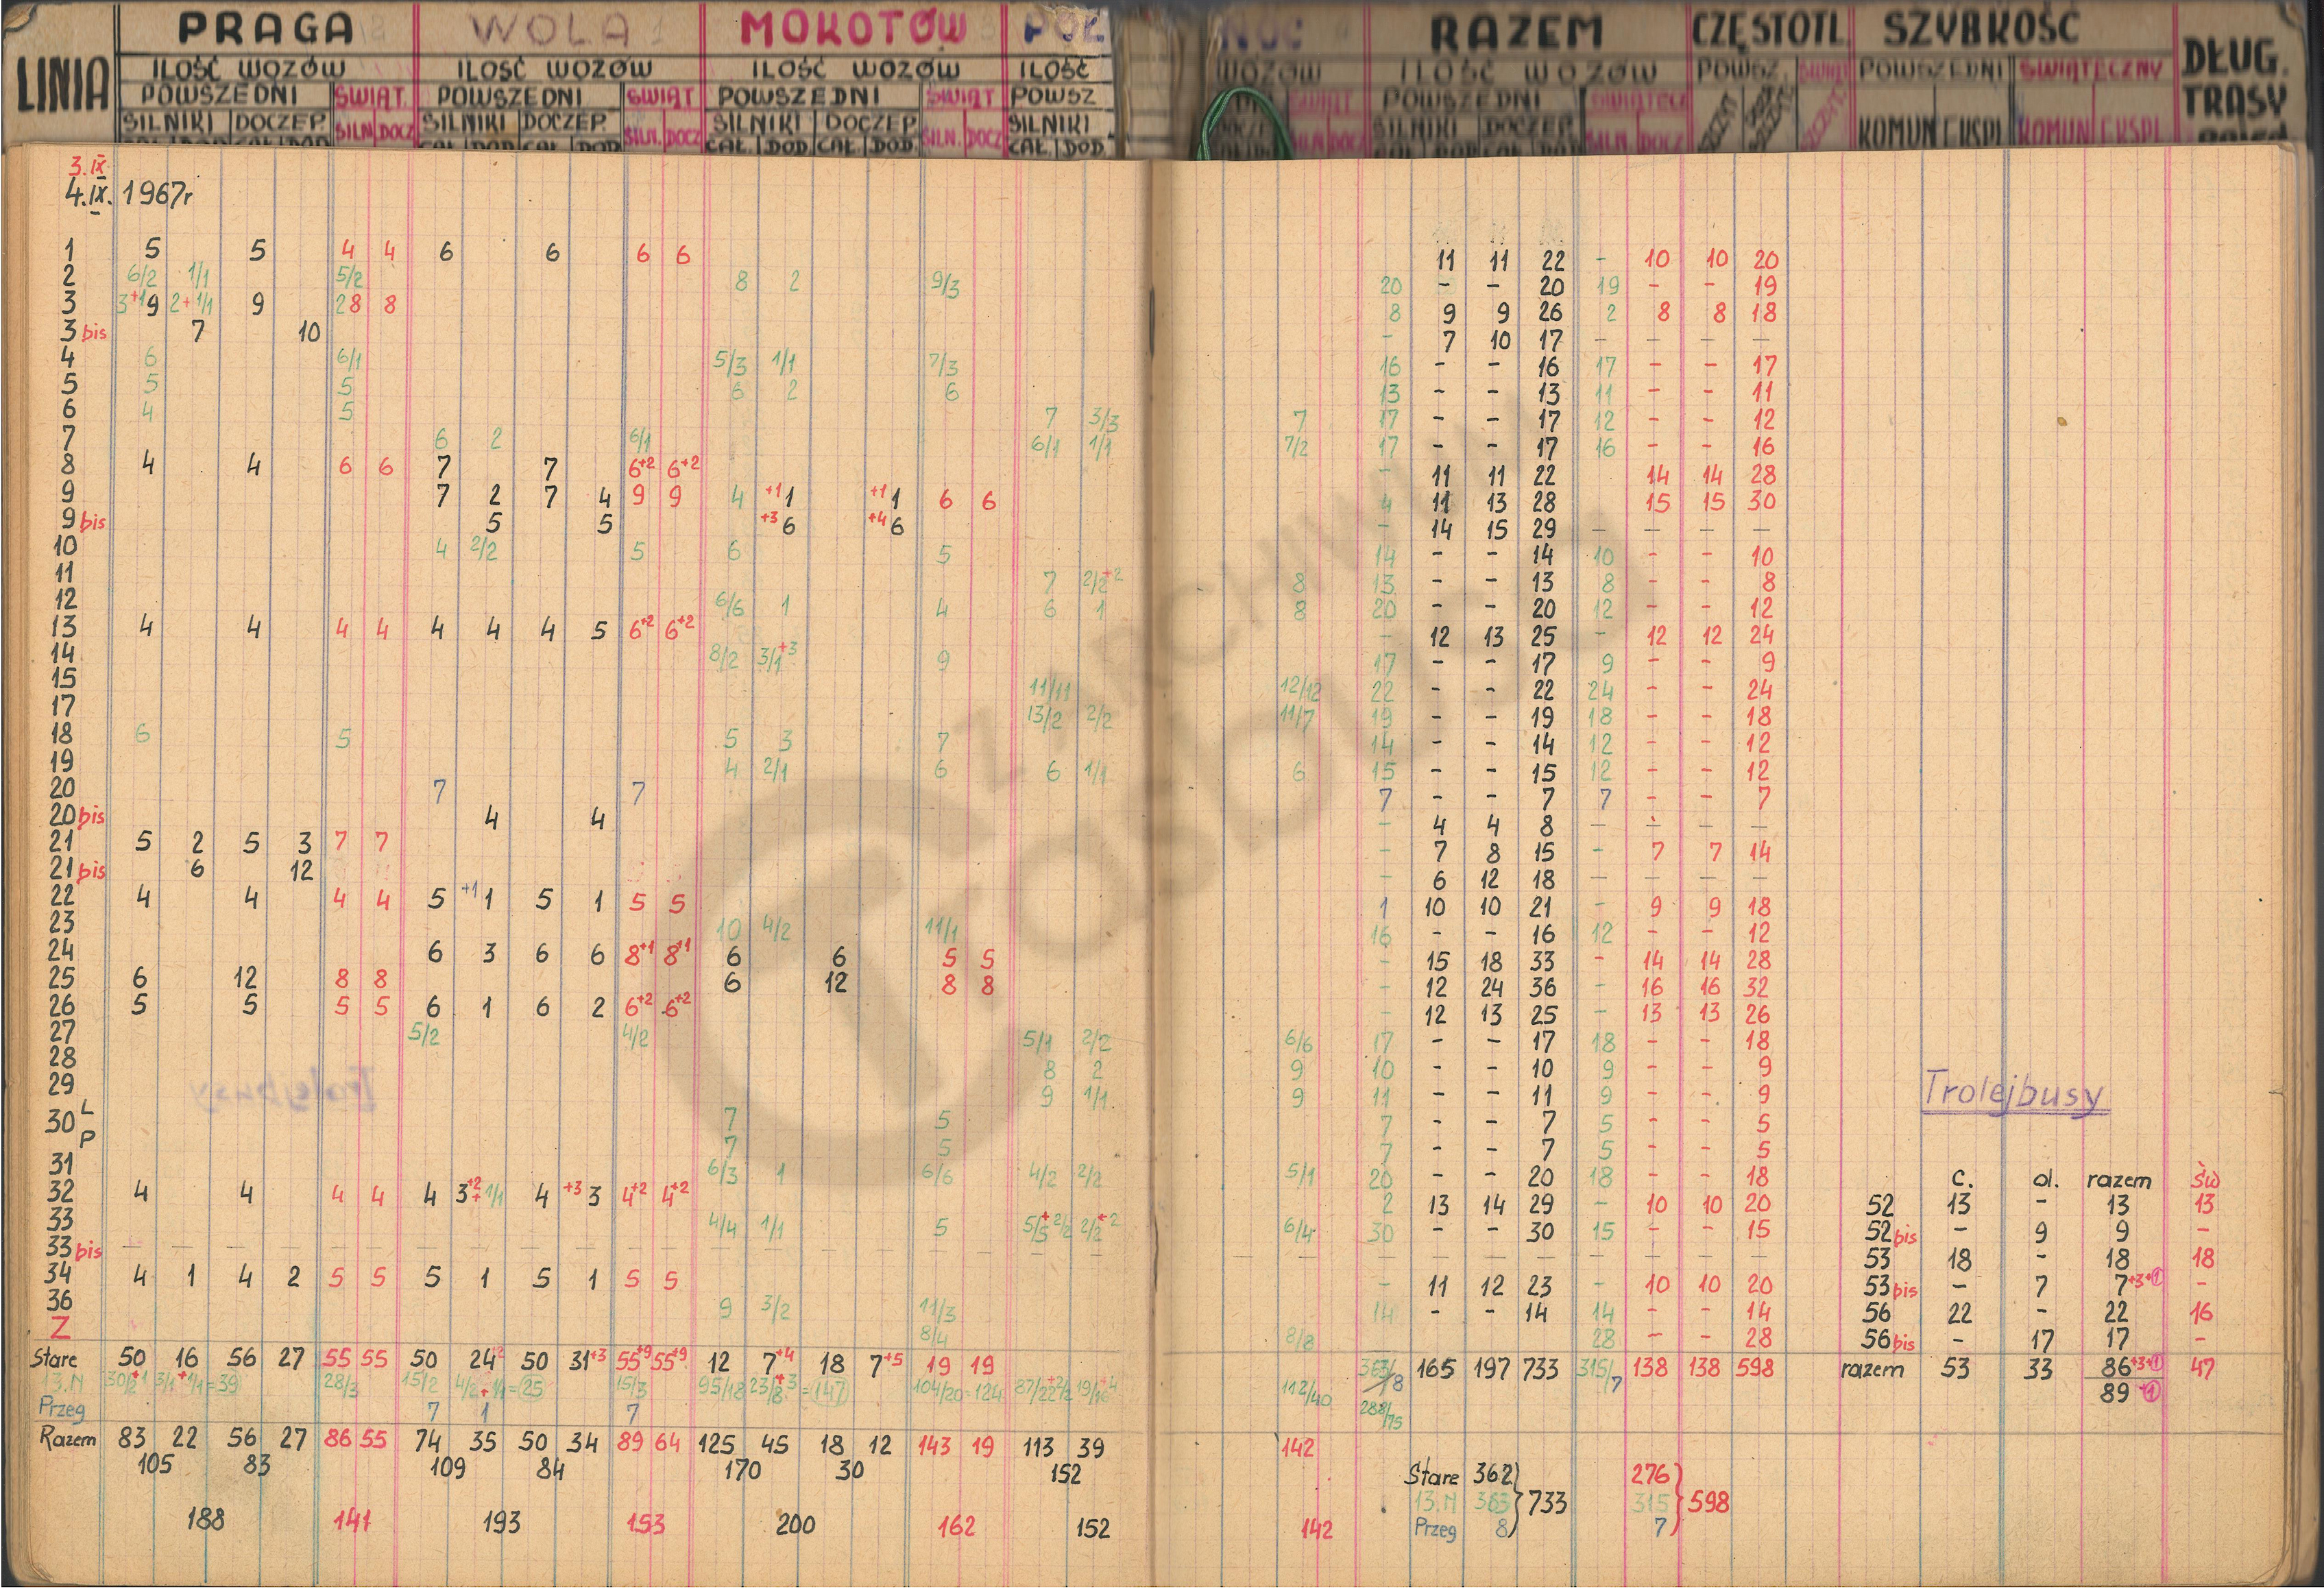 LINIA PRAGA WOLA MOKOTÓW PÓŁ NOC RAZEM CZĘSTOTL. SZYBKOŚĆ DŁUG. TRASY
ILOŚĆ WOZÓW ILOŚĆ WOZÓW ILOŚĆ WOZÓW ILOŚĆ WOZÓW ILOŚĆ WOZÓW POWSZ. ŚWIĄT POWSZEDNI ŚWIĄTECZNY
POWSZEDNI ŚWIĄT. POWSZEDNI ŚWIĄT POWSZEDNI ŚWIĄT POWSZ ŚWIĄT POWSZEDNI ŚWIĄTECZ
SILNIKI DOCZEP. SILN. DOCZ SILNIKI DOCZEP. SILN. DOCZ SILNIKI DOCZEP. SILN. DOCZ SILNIKI SILN. DOCZ SILNIKI DOCZEP SILN DOCZ KOMUN EKSPL KOMUN EKSPL
CAŁ. DOD CAŁ. DOD CAŁ. DOD CAŁ. DOD CAŁ. DOD. CAŁ. DOD. CAŁ. DOD.
3.IX
4.IX. 1967r
1 5 5 4 4 6 6 6 6 11 11 22 - 10 10 20
2 6/2 1/1 5/2 8 2 9/3 20 - - 20 19 - - 19
3 3+1 9 2+1/1 9 2 8 8 8 9 9 26 2 8 8 18
3 bis 7 10 - 7 10 17 - - - -
4 6 6/1 5/3 1/1 7/3 16 - - 16 17 - - 17
5 5 5 6 2 6 13 - - 13 11 - - 11
6 4 5 7 3/3 7 17 - - 17 12 - - 12
7 6 2 6/1 6/1 1/1 7/2 17 - - 17 16 - - 16
8 4 4 6 6 7 7 6+2 6+2 - 11 11 22 14 14 28
9 7 2 7 4 9 9 4 +1 1 +1 1 6 6 4 11 13 28 15 15 30
9 bis 5 5 +3 6 +4 6 - 14 15 29 - - - -
10 4 2/2 5 6 5 14 - - 14 10 - - 10
11 7 2/2+2 8 13 - - 13 8 - - 8
12 6/6 1 4 6 1 8 20 - - 20 12 - - 12
13 4 4 4 4 4 4 4 5 6+2 6+2 - 12 13 25 - 12 12 24
14 8/2 3/1+3 9 17 - - 17 9 - - 9
15 11/11 12/12 22 - - 22 24 - - 24
17 13/2 2/2 11/7 19 - - 19 18 - - 18
18 6 5 5 3 7 14 - - 14 12 - - 12
19 4 2/1 6 6 1/1 6 15 - - 15 12 - - 12
20 7 7 7 - - 7 7 - - 7
20 bis 4 4 - 4 4 8 - - - -
21 5 2 5 3 7 7 - 7 8 15 - 7 7 14
21 bis 6 12 - 6 12 18 - - - -
22 4 4 4 4 5 +1 1 5 1 5 5 1 10 10 21 - 9 9 18
23 10 4/2 11/1 16 - - 16 12 - - 12
24 6 3 6 6 8+1 8+1 6 6 5 5 - 15 18 33 - 14 14 28
25 6 12 8 8 6 12 8 8 - 12 24 36 - 16 16 32
26 5 5 5 5 6 1 6 2 6+2 6+2 - 12 13 25 - 13 13 26
27 5/2 4/2 5/1 2/2 6/6 17 - - 17 18 - - 18
28 8 2 9 10 - - 10 9 - - 9
29 9 1/1 9 11 - - 11 9 - - 9
Trolejbusy
30 L 7 5 7 - - 7 5 - - 5
P 7 5 7 - - 7 5 - - 5
31 6/3 1 6/6 4/2 2/2 5/1 20 - - 20 18 - - 18 c. od. razem św
32 4 4 4 4 4 3+2+1/1 4 +3 3 4+2 4+2 2 13 14 29 - 10 10 20 52 13 - 13 13
33 4/4 1/1 5 5/5+2/2 2/2+2 6/4 30 - - 30 15 - - 15 52 bis - 9 9 -
33 bis - - - - - - - - - - - - - - - - - - - - - - - - - - 53 18 - 18 18
34 4 1 4 2 5 5 5 1 5 1 5 5 - 11 12 23 - 10 10 20 53 bis - 7 7+3+1 -
36 9 3/2 11/3 14 - - 14 14 - - 14 56 22 - 22 16
Z 8/4 8/8 28 - - 28 56 bis - 17 17 -
Stare 50 16 56 27 55 55 50 24+2 50 31+3 55+9 55+9 12 7+4 18 7+5 19 19 363/8 165 197 733 315/7 138 138 598 razem 53 33 86+3+1 47
13.N 30/2+1 3/1+1/1=39 28/3 15/2 4/2+1/1=25 15/3 95/18 23/8+3=147 104/20=124 87/22+2/2 19/16+4 112/40 288/75 89+1
Przeg 7 1 7
Razem 83 22 56 27 86 55 74 35 50 34 89 64 125 45 18 12 143 19 113 39 142
105 83 109 84 170 30 152 Stare 362 276
13.N 363 733 315 598
188 141 193 153 200 162 152 142 Przeg 8 7